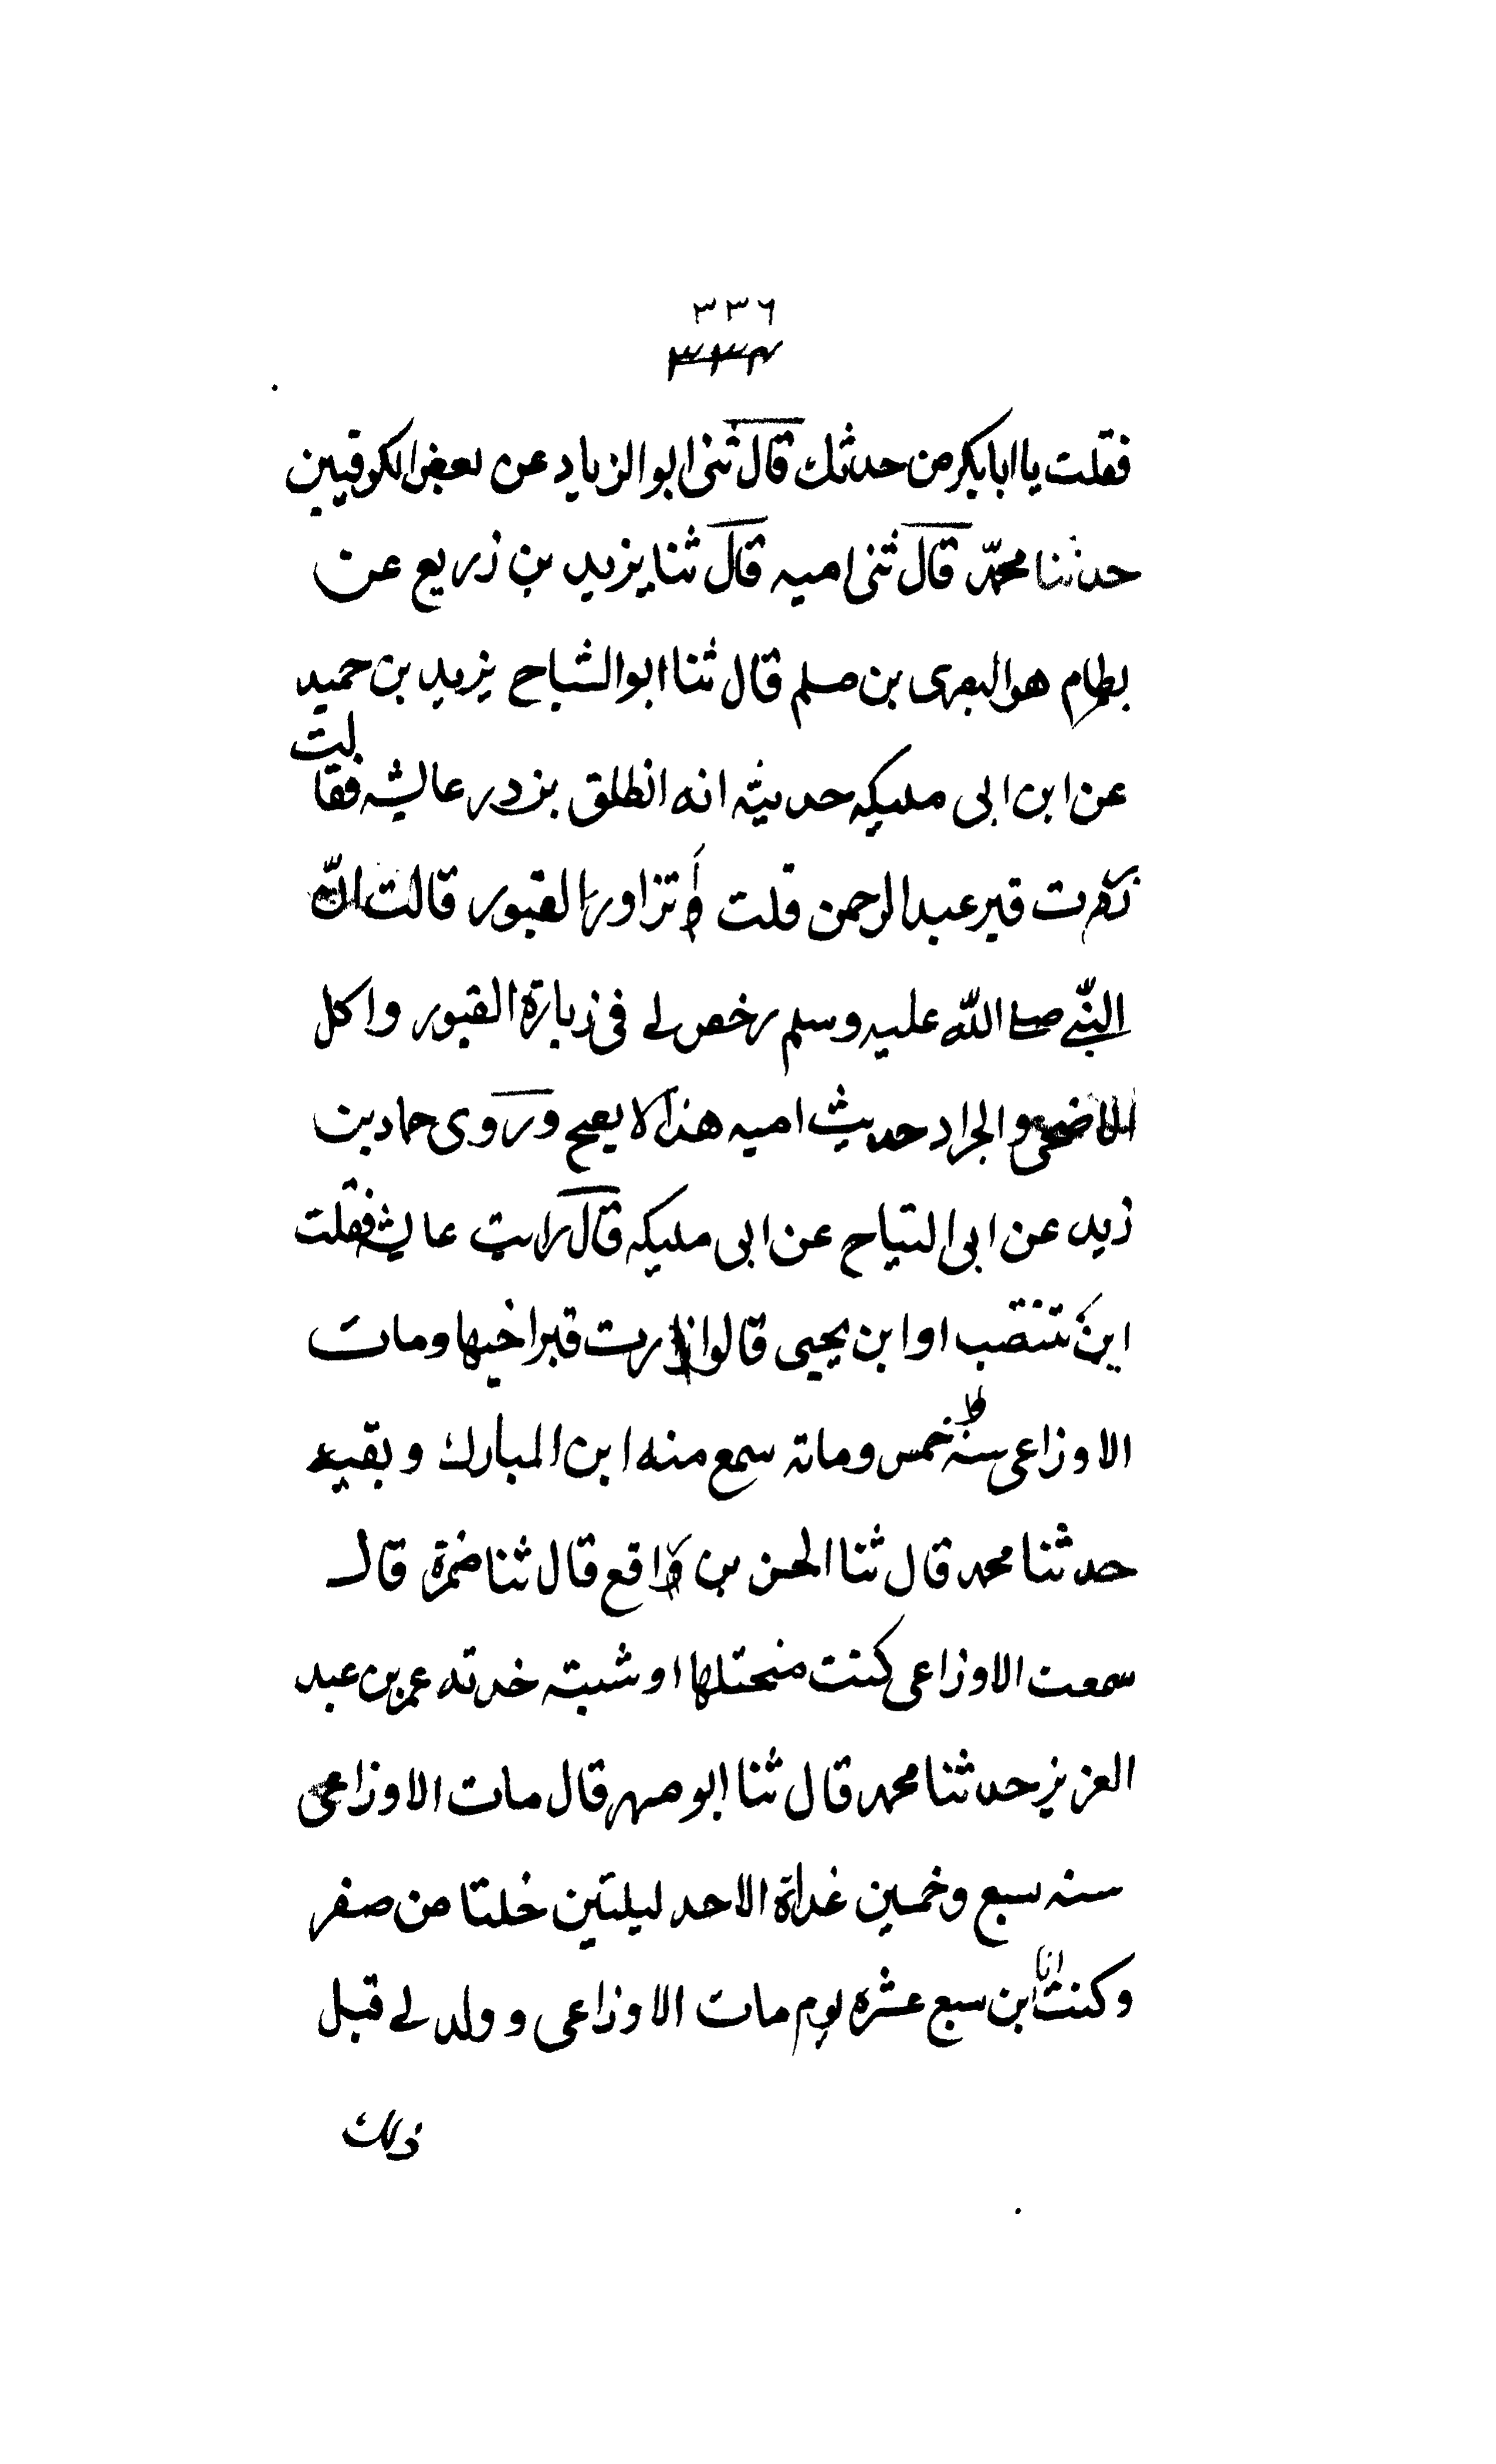 ٣٣٦
٣٣٧
فقلت يا ابا بكر من حدثك قال ثنى ابو الزياد عن بعض الكوفيين
حدثنا محمد قال ثنى اميه قال ثنا يزيد بن زريع عن
بطام هو البصرى بن مسلم قال ثنا ابو الشباح يزيد بن حميد
عن ابن ابى مليكه حديثه انه انطلق يزور عايشه فقالت
زرت قبر عبد الرحمن قلت لا تزاورها القبور قالت ان
النبي صلى الله عليه وسلم رخص لي في زيارة القبور واكل
الاضحى والجراد حديث اميه هذا لا يصح وروى حماد بن
زيد عن ابى التياح عن ابى مليكه قال رايت عايشه فقلت
اين تنتصب او ابن يحيى قالوا زرت قبر اخيها ومات
الاوزاعى سنة خمس ومائة سمع منه ابن المبارك وبقيه
حدثنا محمد قال ثنا الحسن بن واقع قال ثنا ضمرة قال
سمعت الاوزاعى كنت محتلما او شبته خدته عمر بن عبد
العزيز حدثنا محمد قال ثنا ابو مسهر قال مات الاوزاعى
سنه سبع وخمسين غداة الاحد ليلتين خلتا من صفر
وكنت انا ابن سبع عشره يوم مات الاوزاعى وولد لي قبل
ذلك